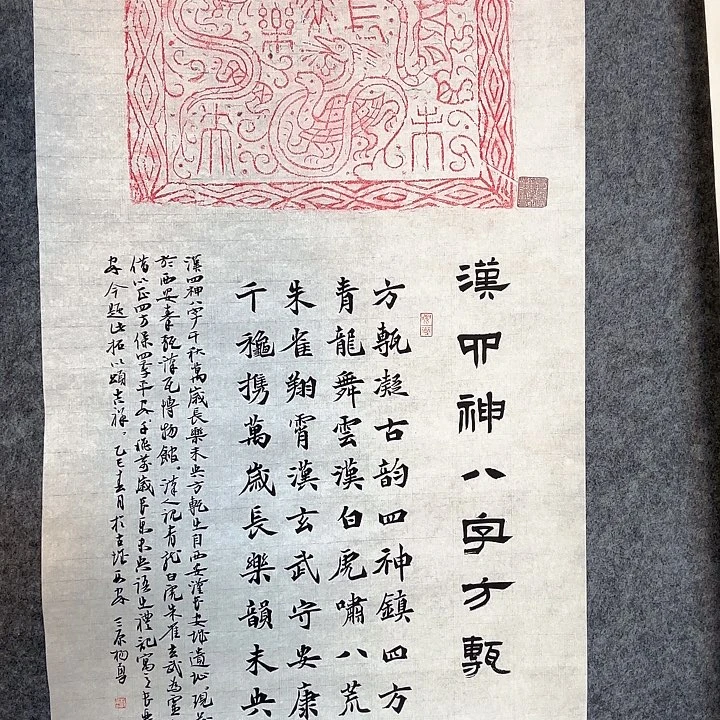 樂
漢四神八字方甎
方甎凝古韵四神鎮四方
青龍舞雲漢白虎嘯八荒
朱雀翔霄漢玄武守安康
千龝携萬歲長樂韻未央
漢四神八字千秋萬歲長樂未央方甎出自西安漢長安城遺址現藏
於西安秦甎漢瓦博物館。漢人記青龍白虎朱雀玄武為靈
借以正四方保四季平安千秋萬歲長樂未央語出禮記寓
安今題此拓以頌吉祥。乙巳春月於古城西安三原楊